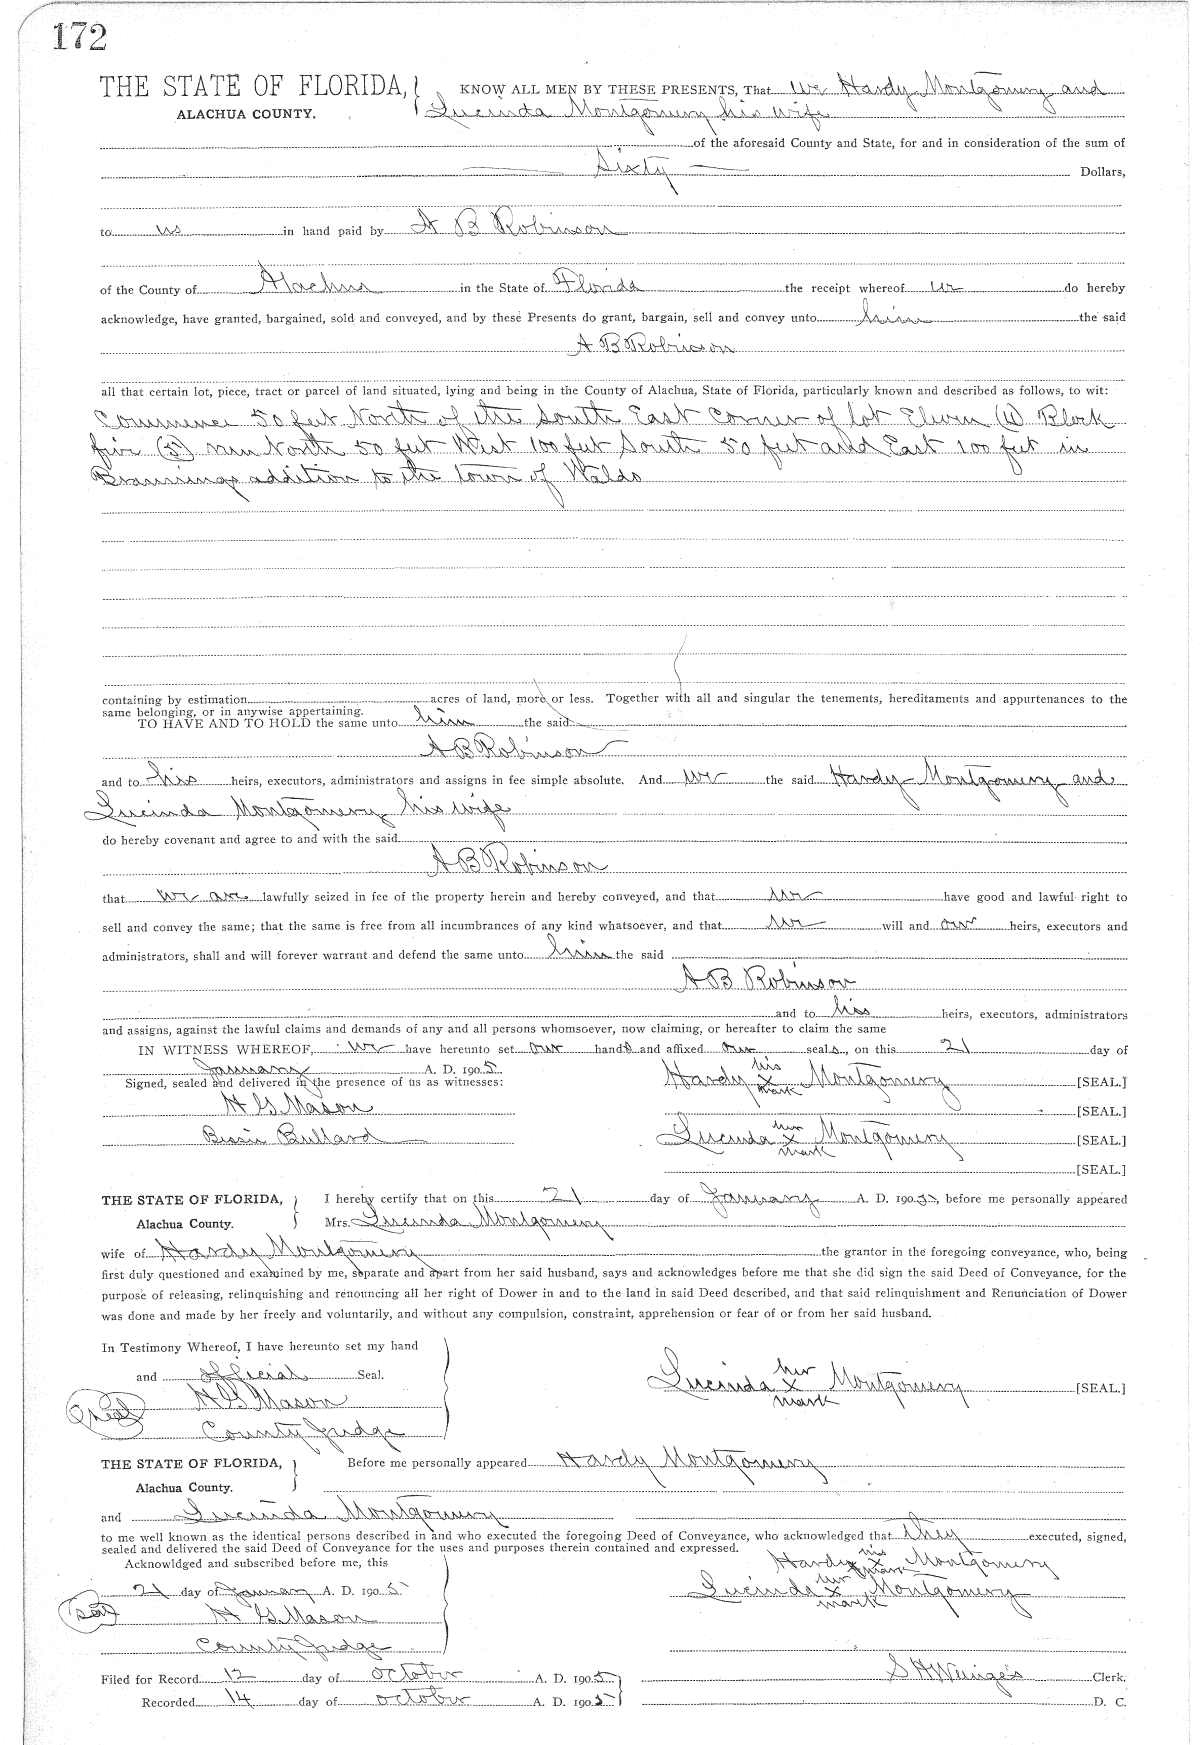 172
THE STATE OF FLORIDA, KNOW ALL MEN BY THESE PRESENTS, That we Hardy Montgomery and
ALACHUA COUNTY. Lucinda Montgomery his wife
of the aforesaid County and State, for and in consideration of the sum of
Sixty Dollars,
to us in hand paid by A B Robinson
of the County of Alachua in the State of Florida the receipt whereof we do hereby
acknowledge, have granted, bargained, sold and conveyed, and by these Presents do grant, bargain, sell and convey unto him the said
A B Robinson
all that certain lot, piece, tract or parcel of land situated, lying and being in the County of Alachua, State of Florida, particularly known and described as follows, to wit:
Commence 50 feet North of the South East Corner of lot Eleven (11) Block
five (5) run North 50 feet West 100 feet South 50 feet and East 100 feet in
addition to the town of Waldo
containing by estimation acres of land, more or less. Together with all and singular the tenements, hereditaments and appurtenances to the
same belonging, or in anywise appertaining.
TO HAVE AND TO HOLD the same unto him the said
A B Robinson
and to his heirs, executors, administrators and assigns in fee simple absolute. And we the said Hardy Montgomery and
Lucinda Montgomery his wife
do hereby covenant and agree to and with the said
A B Robinson
that we are lawfully seized in fee of the property herein and hereby conveyed, and that we have good and lawful right to
sell and convey the same; that the same is free from all incumbrances of any kind whatsoever, and that we will and our heirs, executors and
administrators, shall and will forever warrant and defend the same unto him the said
A B Robinson
and to his heirs, executors, administrators
and assigns, against the lawful claims and demands of any and all persons whomsoever, now claiming, or hereafter to claim the same
IN WITNESS WHEREOF, we have hereunto set our hands and affixed our seals, on this 21 day of
January A. D. 1905
Signed, sealed and delivered in the presence of us as witnesses: Hardy his x mark Montgomery [SEAL.]
H G Mason [SEAL.]
Bessie Bullard Lucinda her x mark Montgomery [SEAL.]
[SEAL.]
THE STATE OF FLORIDA, I hereby certify that on this 21 day of January A. D. 1905, before me personally appeared
Alachua County. Mrs. Lucinda Montgomery
wife of Hardy Montgomery the grantor in the foregoing conveyance, who, being
first duly questioned and examined by me, separate and apart from her said husband, says and acknowledges before me that she did sign the said Deed of Conveyance, for the
purpose of releasing, relinquishing and renouncing all her right of Dower in and to the land in said Deed described, and that said relinquishment and Renunciation of Dower
was done and made by her freely and voluntarily, and without any compulsion, constraint, apprehension or fear of or from her said husband.
In Testimony Whereof, I have hereunto set my hand
and official Seal. Lucinda her x mark Montgomery [SEAL.]
Seal H G Mason
County Judge
THE STATE OF FLORIDA, Before me personally appeared Hardy Montgomery
Alachua County.
and Lucinda Montgomery
to me well known as the identical persons described in and who executed the foregoing Deed of Conveyance, who acknowledged that they executed, signed,
sealed and delivered the said Deed of Conveyance for the uses and purposes therein contained and expressed.
Acknowldged and subscribed before me, this Hardy his x mark Montgomery
21 day of January A. D. 1905 Lucinda her x mark Montgomery
Seal H G Mason
County Judge
Filed for Record 12 day of October A. D. 1905 S H Wienges Clerk.
Recorded 14 day of October A. D. 1905 D. C.